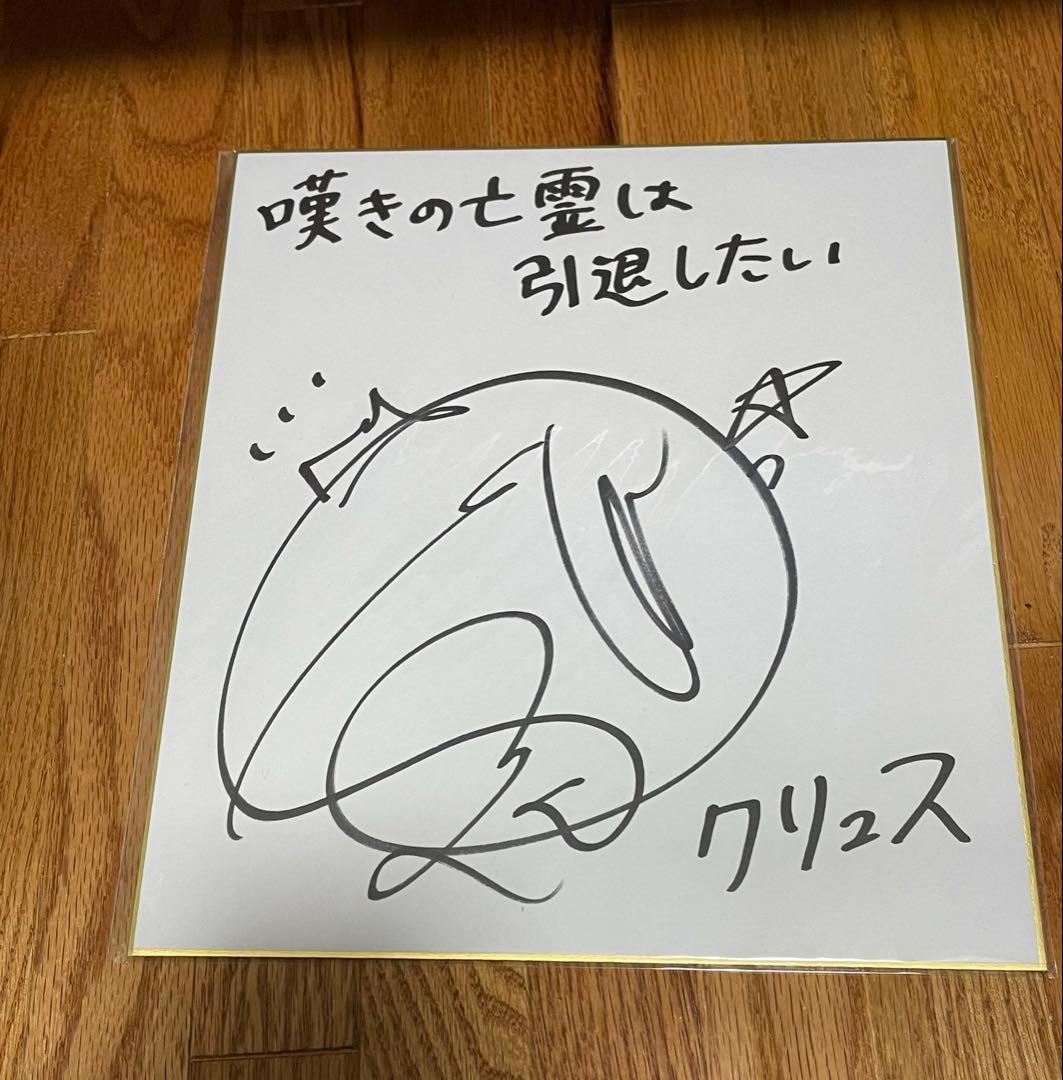 嘆きの亡霊は
引退したい
クリュス